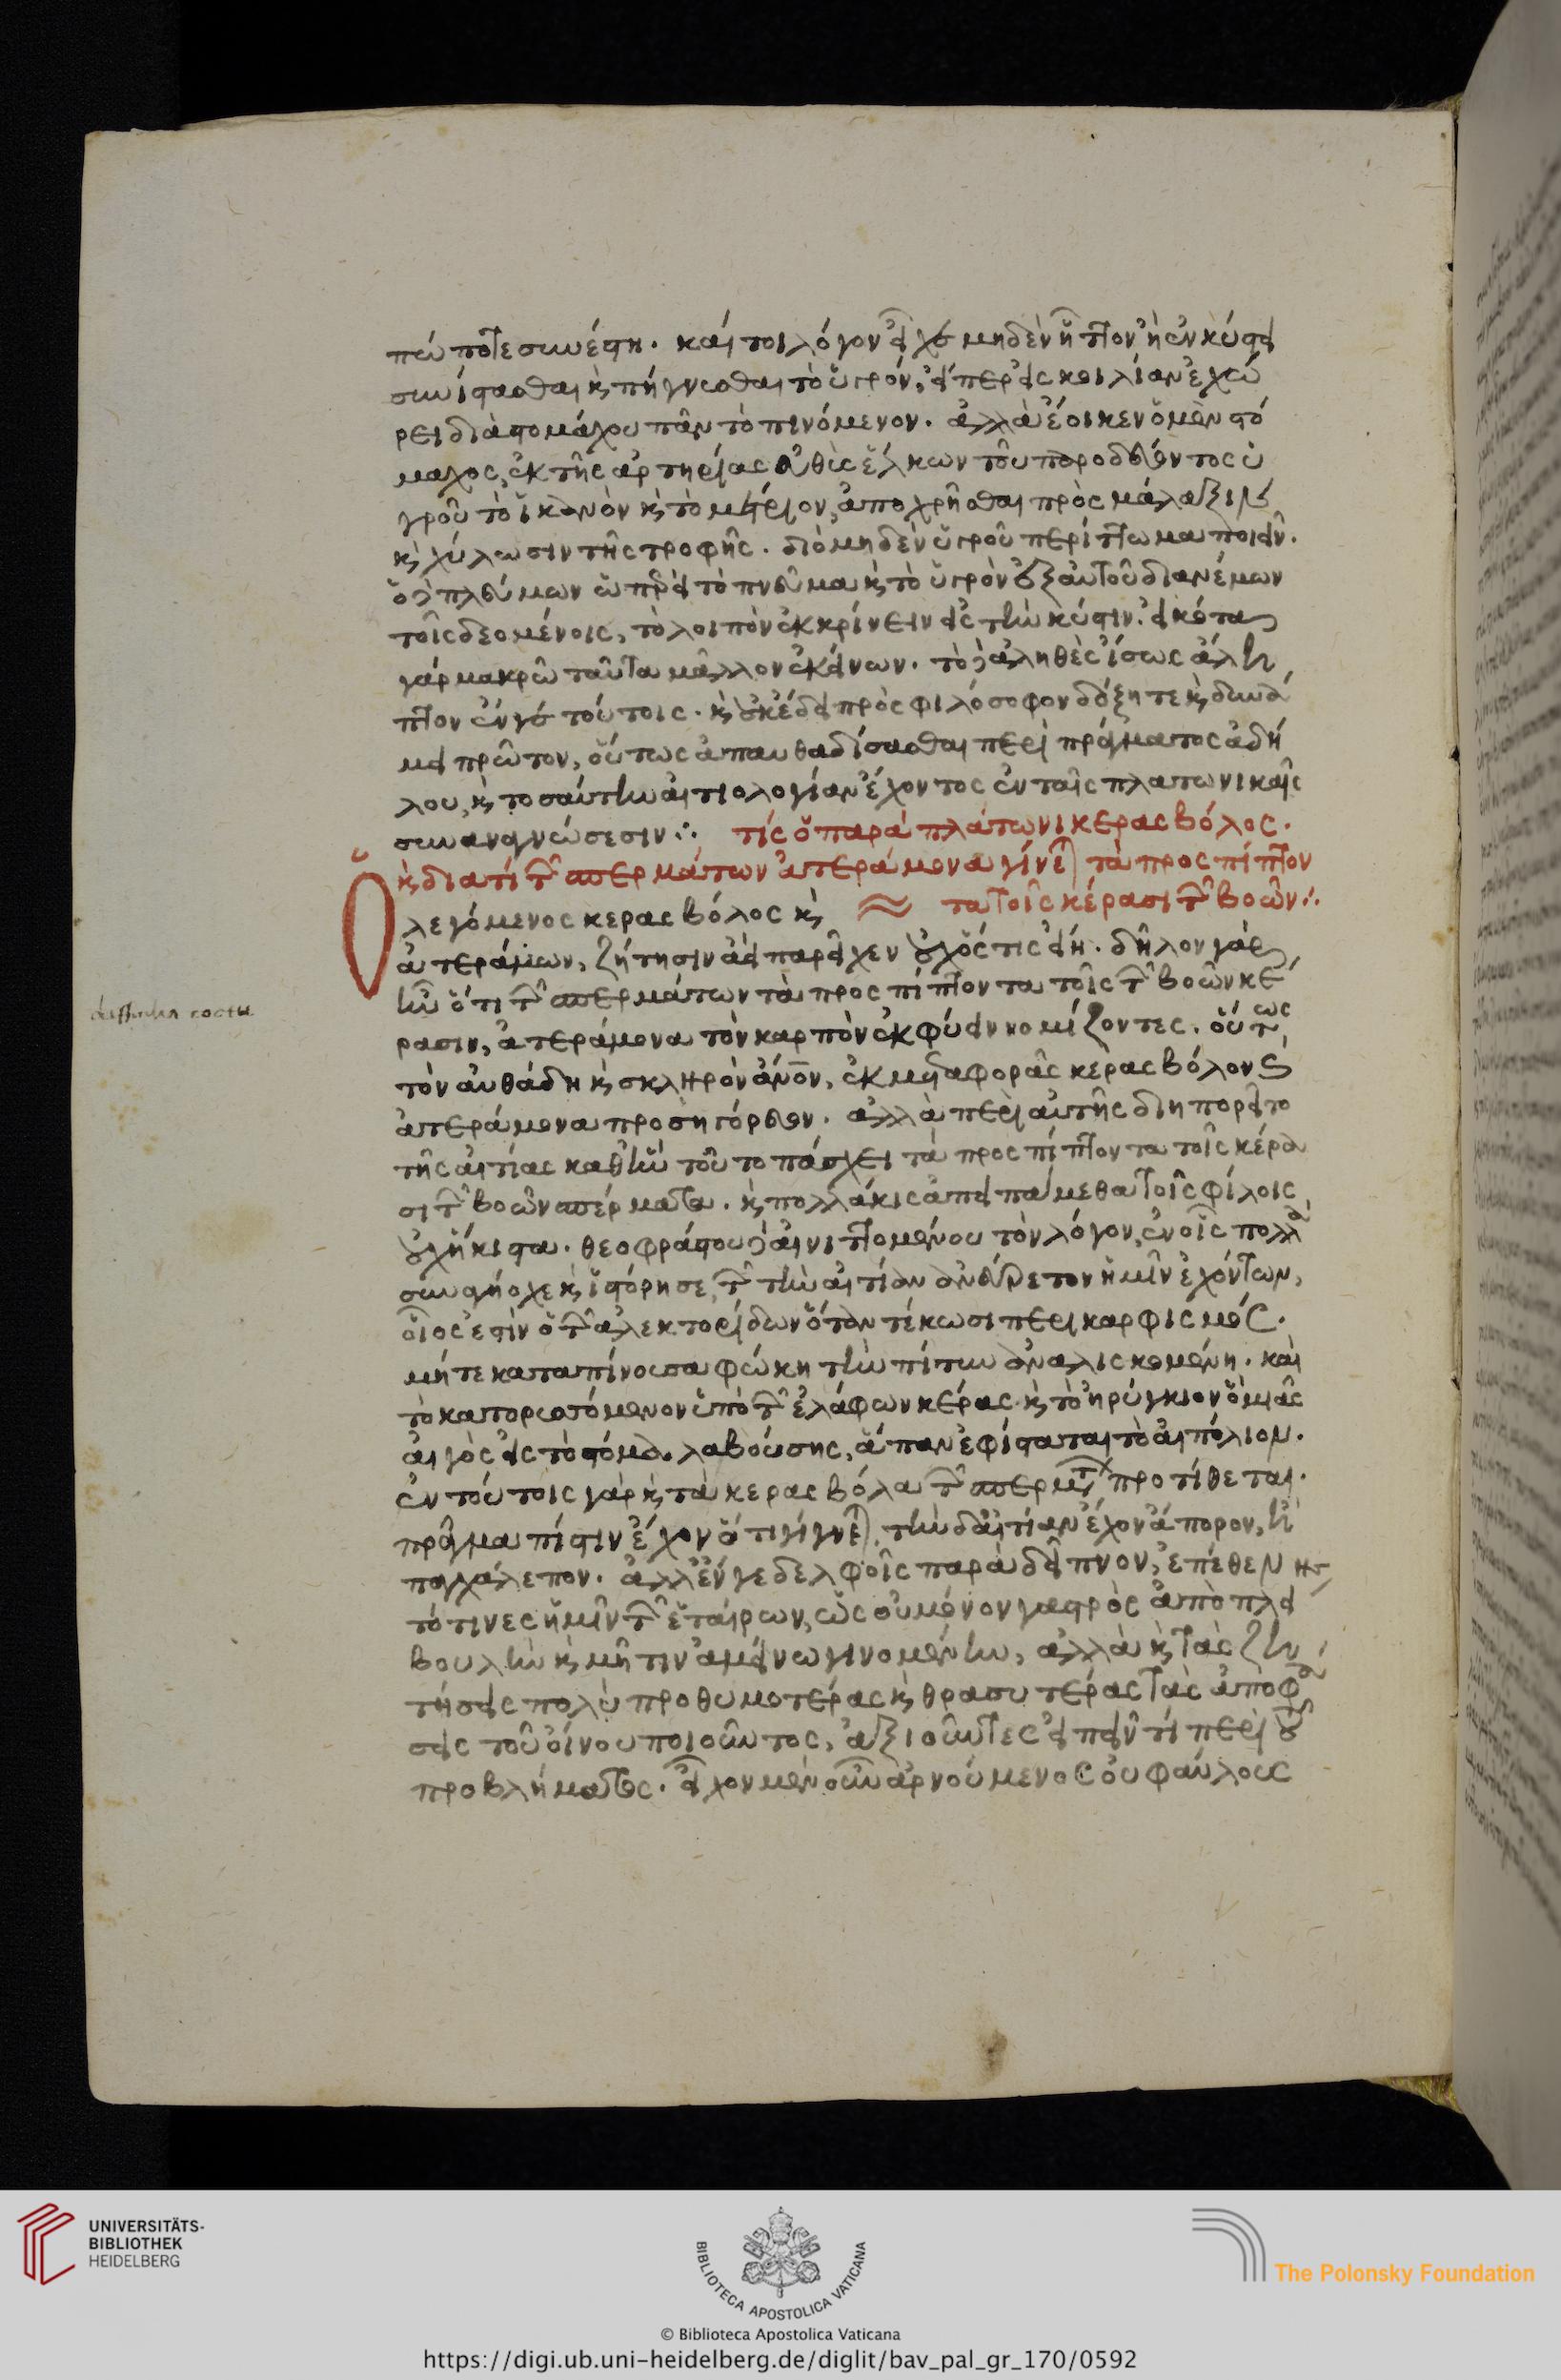 πώποτε συνέστη. καίτοι λόγον εἶχε μηδὲν ἧττον ἢ ἐν κύστει
συνίστασθαι κ πήγνυσθαι τὸ ὑγρόν, εἴπερ εἰς κοιλίαν ἐχώ
ρει διὰ στομάχου πᾶν τὸ πινόμενον. ἀλλὰ ἔοικεν ὁ μὲν στό
μαχος, ἐκ τῆς ἀρτηρίας εὐθὺς ἕλκων τοῦ παροδεύοντος ὑ
γροῦ τὸ ἱκανὸν κ τὸ μέτριον, ἀποχρῆσθαι πρὸς μάλαξιν
κ χύλωσιν τῆς τροφῆς. διὸ μηδὲν ὑγροῦ περίττωμα ποιεῖν.
ὁ δὲ πλεύμων ὥσπερ τὸ πνεῦμα κ τὸ ὑγρὸν ἐξ αὐτοῦ διανέμων
τοῖς δεομένοις, τὸ λοιπὸν ἐκκρίνειν εἰς τὴν κύστιν. εἰκότα
γὰρ μακρῷ ταῦτα μᾶλλον ἐκείνων. τὸ δὲ ἀληθὲς ἴσως ἄλη
πτον ἔν γε τούτοις. κ οὐκ ἔδει πρὸς φιλόσοφον δόξῃ τε κ δυνά
μει πρῶτον, οὕτως ἀπαυθαδίσασθαι περὶ πράγματος ἀδή
λου, κ τοσαύτην αἰτιολογίαν ἔχοντος ἐν ταῖς πλατωνικαῖς
συναναγνώσεσιν ∴ τίς ὁ παρὰ πλάτωνι κερασβόλος.
κ διατί τῶν σπερμάτων ἀτεράμονα γίνεται τὰ προσπίπτον
Ὁ λεγόμενος κερασβόλος κ ≈ τα τοῖς κέρασι τῶν βοῶν ∴
ἀτεράμων, ζήτησιν ἀεὶ παρεῖχεν οὐχ ὅστις εἴη. δῆλον γὰρ
ἦν ὅτι τῶν σπερμάτων τὰ προσπίπτοντα τοῖς τῶν βοῶν κέ
ρασιν, ἀτεράμονα τὸν καρπὸν ἐκφύειν νομίζοντες. οὕτως
τὸν αὐθάδη κ σκληρὸν ἄνον, ἐκ μεταφορᾶς κερασβόλον κ
ἀτεράμονα προσηγόρευον. ἀλλὰ περὶ αὐτῆς διηπορεῖτο
τῆς αἰτίας καθ' ἣν τοῦτο πάσχει τὰ προσπίπτοντα τοῖς κέρα
σι τῶν βοῶν σπέρματα. κ πολλάκις ἀπειπάμεθα τοῖς φίλοις
οὐχ ἥκιστα. θεοφράστου δὲ αἰνιττομένου τὸν λόγον, ἐν οἷς πολλὰ
συναγήοχε κ ἱστόρησε, τῶν τὴν αἰτίαν ἀνεύρετον ἡμῖν ἐχόντων,
οἷός ἐστιν ὁ τῶν ἀλεκτορίδων ὅταν τέκωσι περικαρφισμός.
μήτε καταπίνουσα φώκη τὴν πίτυν ἀναλισκομένη. καὶ
τὸ κατορυσσόμενον ὑπὸ τῶν ἐλάφων κέρας. κ τὸ ἠρύγκιον ὃ μιᾶς
αἰγὸς εἰς τὸ στόμα λαβούσης, ἅπαν ἐφίσταται τὸ αἰπόλιον.
ἐν τούτοις γὰρ κ τὰ κερασβόλα τῶν σπερμάτων προτίθεται.
πρᾶγμα πίστιν ἔχον ὅτι γίγνεται, τὴν δ' αἰτίαν ἔχον ἄπορον, ἢ
παγχάλεπον. ἀλλ' ἔν γε δελφοῖς παρὰ δεῖπνον, ἐπέθεντ
τό τινες ἡμῖν τῶν ἑταίρων, ὡς οὐ μόνον γαστρὸς ἀπὸ πλεί
βουλὴν κ μῆτιν ἀμείνω γινομένην, ἀλλὰ κ τὰς ζη
τήσεις πολὺ προθυμοτέρας κ θρασυτέρας τὰς ἀποφά
σεις τοῦ οἴνου ποιοῦντος, ἀξιοῦντες εἰπεῖν τι περὶ τοῦ
προβλήματος. εἶχον μὲν οὖν ἀρνούμενος οὐ φαύλους
UNIVERSITÄTS-
BIBLIOTHEK
HEIDELBERG
BIBLIOTECA APOSTOLICA VATICANA
The Polonsky Foundation
© Biblioteca Apostolica Vaticana
https://digi.ub.uni-heidelberg.de/diglit/bav_pal_gr_170/0592